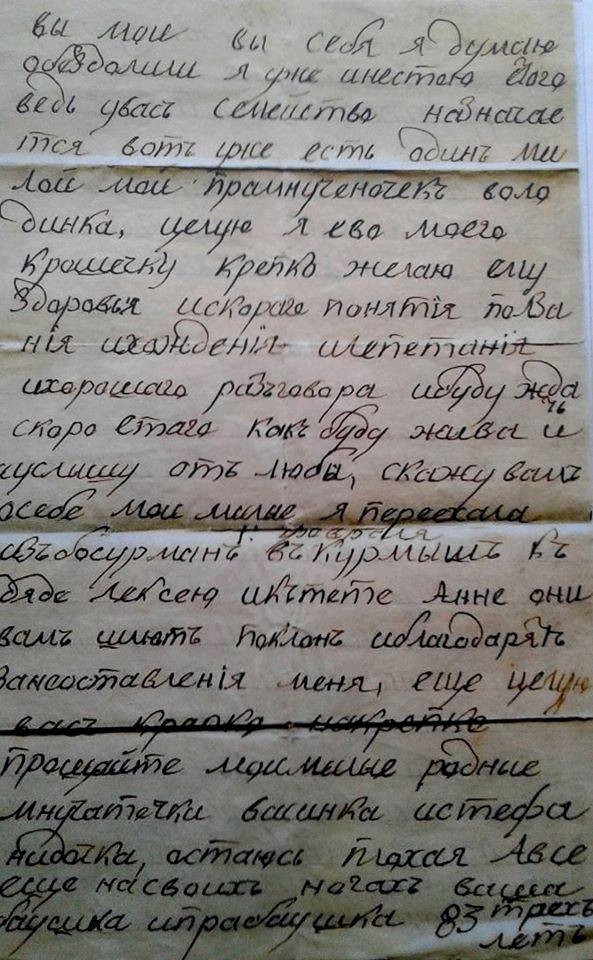 вы мои вы себя я думаю
обездолили я уже нестою етого
ведь увасъ семействоназначае
тся вотъ уже есть одинъ ми
лой мой правнученочекъ воло
динка, целую я ево моего
крошечку крепкъ желаю ему
здоровья искораго понятія полза
нія ихожденія шепетанія
ихорошаго разъговора ибуду жда
ть
скоро етаго какъ буду жива и
иуслышу отъ люба, скажу вамъ
осебе мои милые я переехала
1. февраля
изъбосурманъ въкурмышъ къ
дяде лексею икътете Анне они
вамъ шлютъ поклонъ иблагодарятъ
Занеоставленія меня, еще целую
васъ крепко накрепко
прощайте моимилые родные
мнучаточки васинка истефа
нидочка, остаюсь плохая Авсе
еще насвоихъ ногахъ ваша
баушка ипрабаушка 83 трехъ
летъ